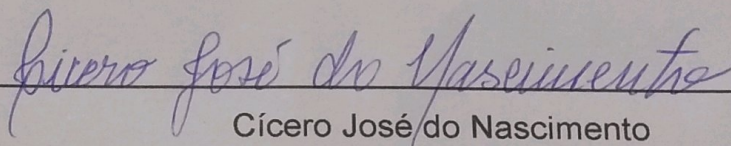 Cícero José do Nascimento
Cícero José do Nascimento